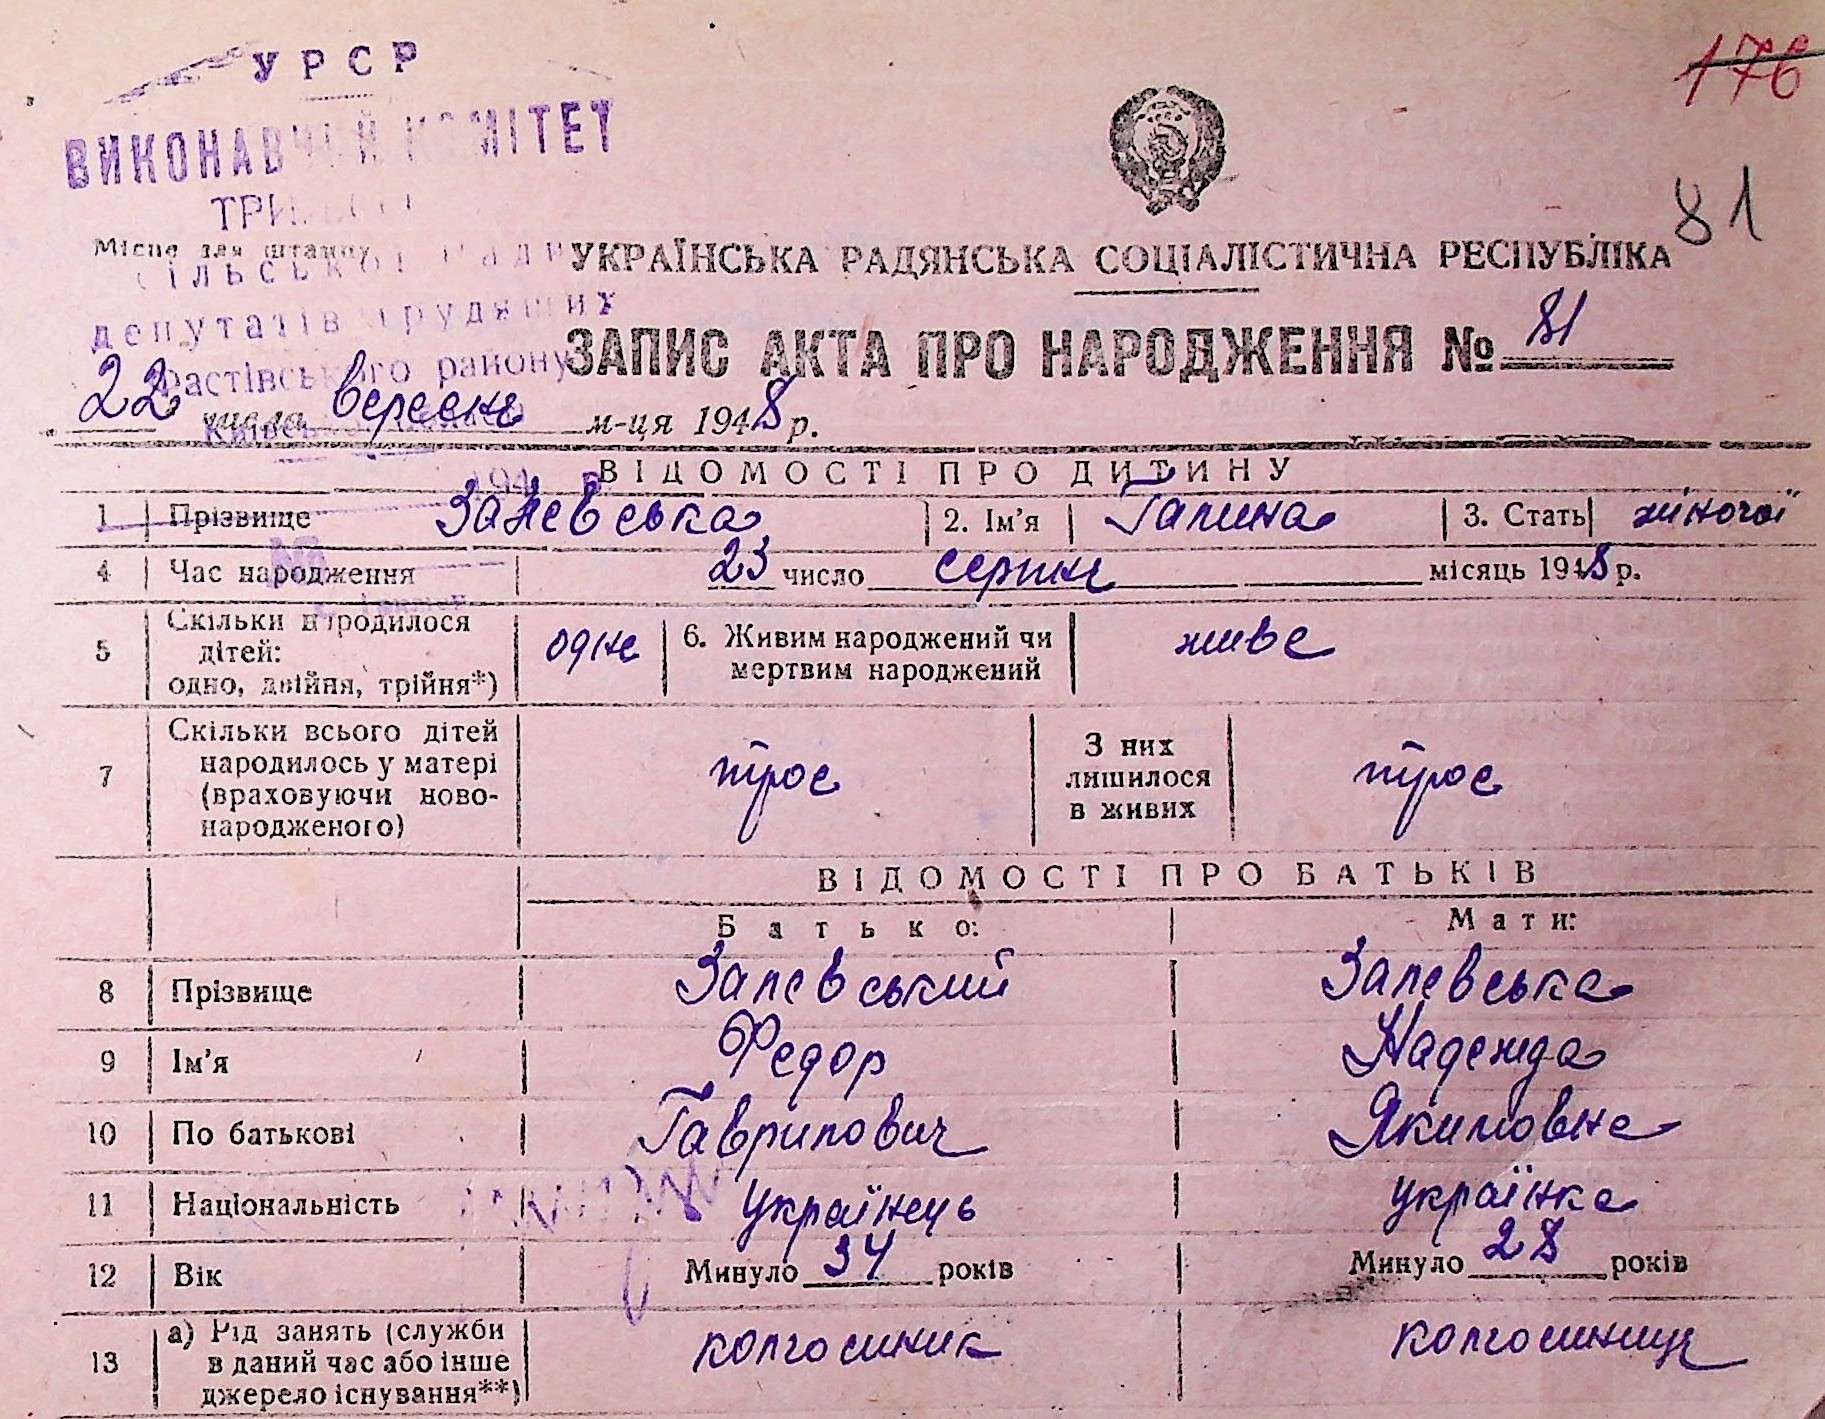 УРСР
176
ВИКОНАВЧИЙ КОМІТЕТ
81
Місце для штампу
сільської ради
УКРАЇНСЬКА РАДЯНСЬКА СОЦІАЛІСТИЧНА РЕСПУБЛІКА
депутатів трудящих
ЗАПИС АКТА ПРО НАРОДЖЕННЯ № 81
Фастівського району
22 числа вересня м-ця 1948 р.
ВІДОМОСТІ ПРО ДИТИНУ
1 Прізвище Залевська 2. Ім'я Галина 3. Стать жіночої
4 Час народження 23 число серпня місяць 1948 р.
5 Скільки народилося дітей: одно, двійня, трійня*) одне 6. Живим народжений чи мертвим народжений живе
7 Скільки всього дітей народилось у матері (враховуючи ново-народженого) троє З них лишилося в живих троє
ВІДОМОСТІ ПРО БАТЬКІВ
Батько: Мати:
8 Прізвище Залевський Залевська
9 Ім'я Федор Надежда
10 По батькові Гаврилович Якимовна
11 Національність українець українка
12 Вік Минуло 34 років Минуло 28 років
13 а) Рід занять (служби в даний час або інше джерело існування**) колгоспник колгоспниця